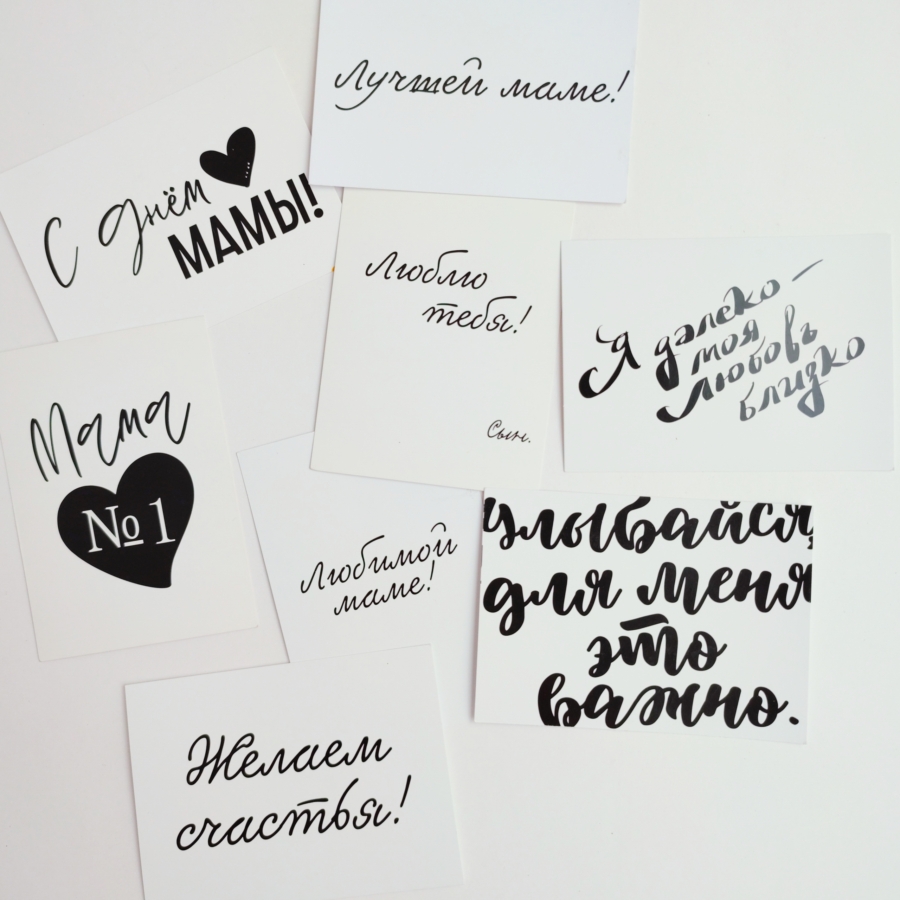 Лучшей маме!
С днём
МАМЫ!
Люблю
тебя!
Сын.
Я далеко -
моя
любовь
близко
Мама
№1
Любимой
маме!
улыбайся,
для меня
это
важно.
Желаем
счастья!